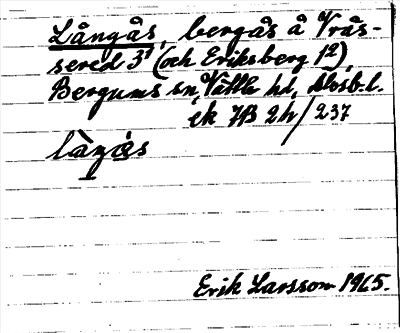 Långås, bergås å Vrås-
sered 3¹ (och Eriksberg 1²),
Bergums sn, Vättle hd, Älvsb. l.
ek 7B 2h/237
làŋås
Erik Larsson 1965.